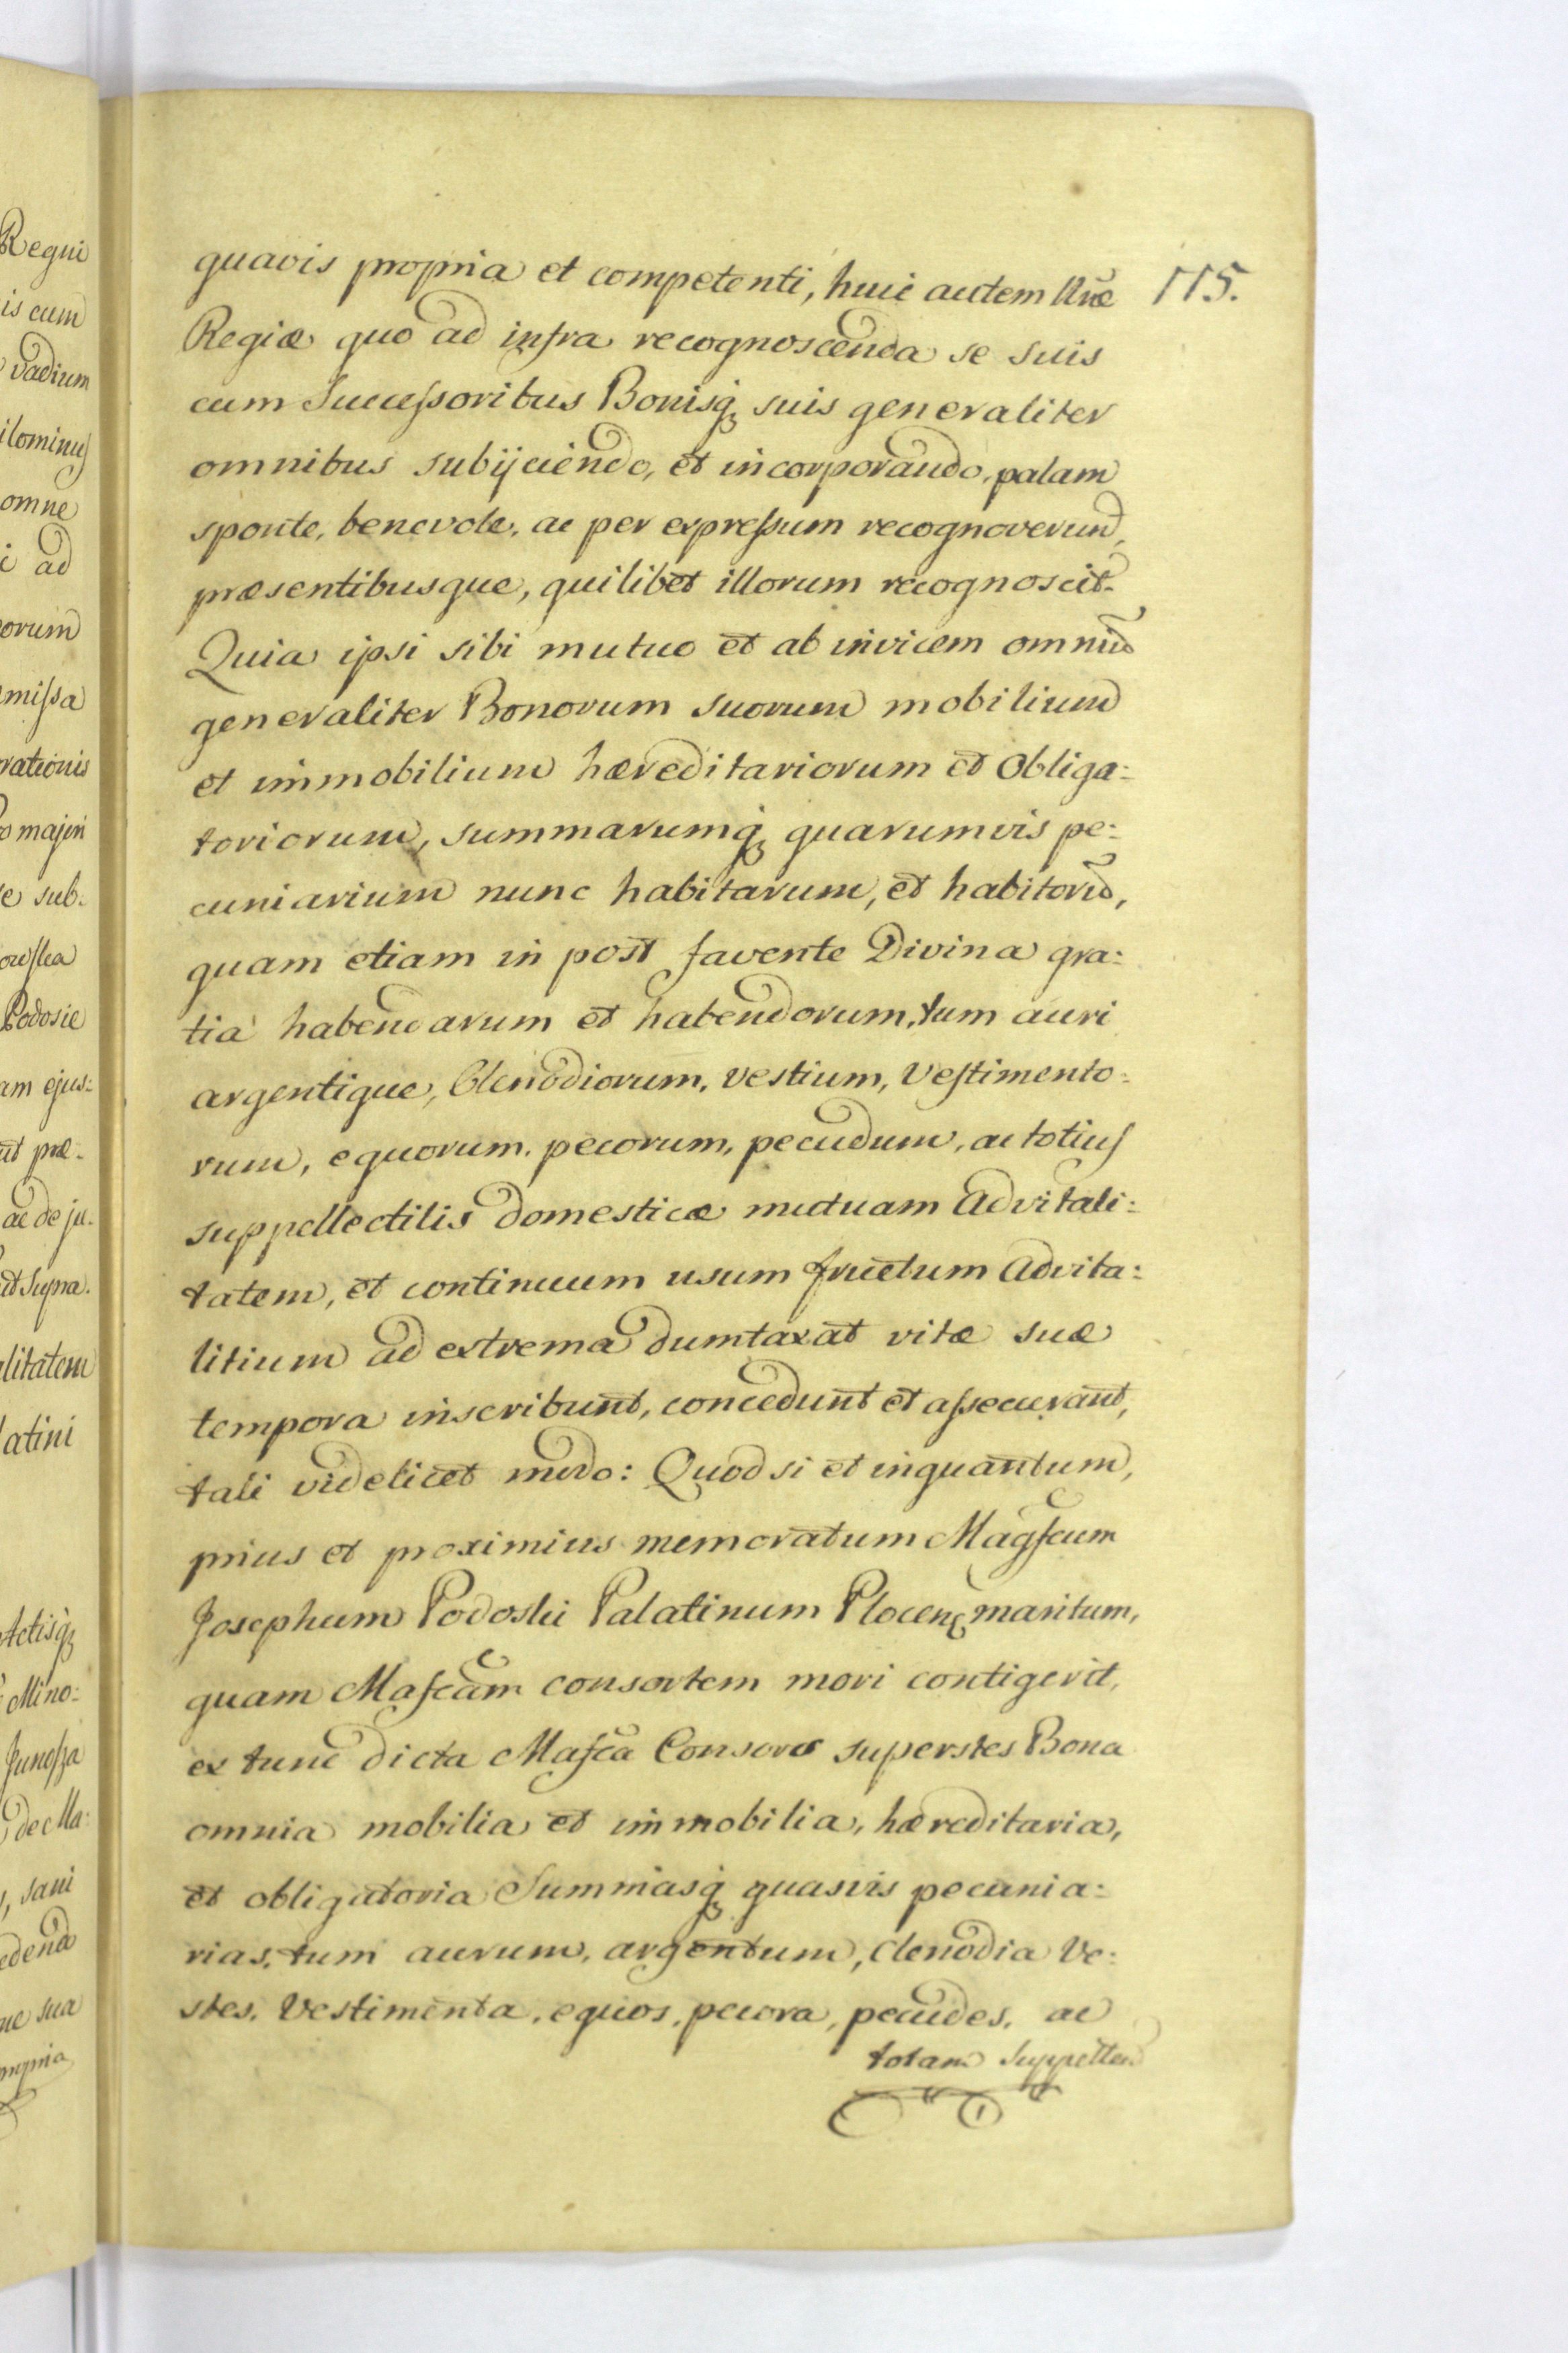 quavis propria et competenti, huic autem Mñæ 115.
Regiæ quo ad infra recognoscenda se suis
cum Successoribus Bonisq́ suis generaliter
omnibus subijciendo, et incorporando, palam
sponte, benevole, ac per expressum recognoverund,
præsentibusque, quilibet illorum recognoscit.
Quia ipsi sibi mutuo et ab invicem omniũ
generaliter Bonorum suorum mobilium
et immobilium hæreditariorum et obliga:
toriorum, summarumq́ quarumvis pe:
cuniarium nunc habitarum, et habitorũ,
quam etiam in post favente Divina gra:
tia habendarum et habendorum, tum auri
argentique, Clenodiorum, vestium, Vestimento:
rum, equorum, pecorum, pecudum, ac totius
suppellectilis domesticæ mutuam Advitali:
tatem, et continuum usum fructum Advita:
litium ad extrema dumtaxat vitæ suæ
tempora inscribunt, concedunt et assecurant,
tali videlicet modo: Quod si et inquantum,
prius et proximius memoratum Magfcum
Josephum Podoski Palatinum Plocenq maritum,
quam Mafcam consortem mori contigerit,
ex tunc dicta Mafca Consors superstes Bona
omnia mobilia et immobilia, hæreditaria,
et obligatoria Summasq́ quasvis pecunia:
rias, tum aurum, argentum, clenodia Ve:
stes, Vestimenta, equos, pecora, pecudes, ac
totam Suppellec
Regni
is cum
vadium
ilominus
omne
i ad
orum
missa
rationis
majori
e sub.
Podosie
am ejus:
ut præ:
ac de ju.
ut Supra.
litatem
latini
Actisq́
Mino:
Junossa
de Ma:
, sani
edend
ue sua
propria